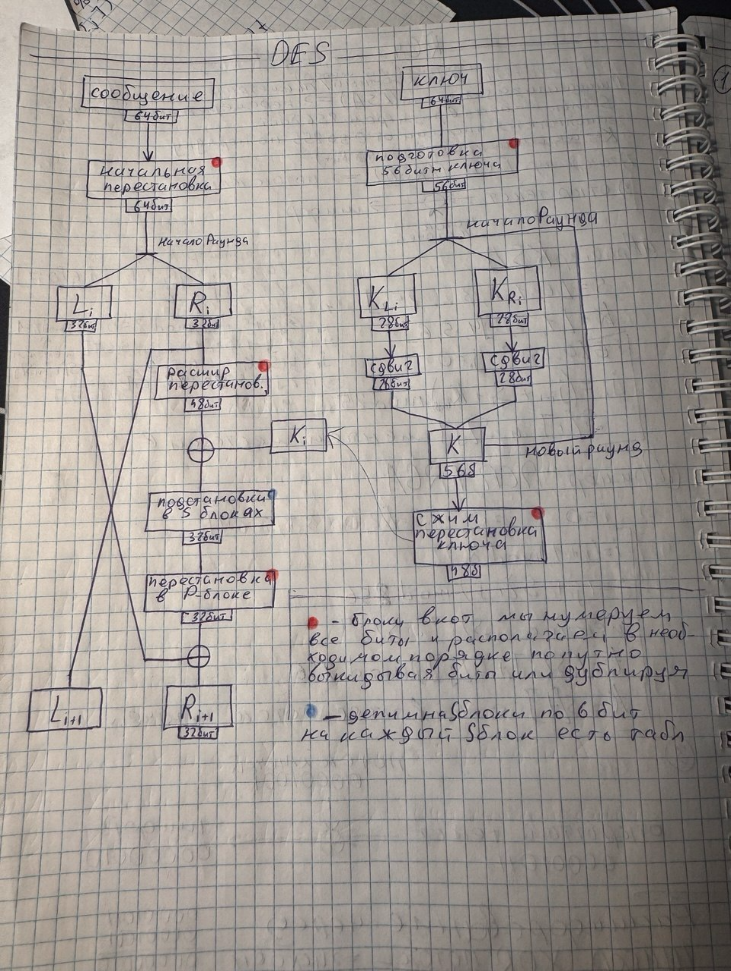 DES
сообщение
64бит
начальная
перестановка
64бит
начало Раунда
Li
32бит
Ri
32бит
расшир
перестанов.
48бит
Ki
подстановки
в S блоках
32бит
перестановка
в P-блоке
32бит
Li+1
Ri+1
32бит
ключ
64бит
подготовка
56 биты ключа
56бит
начало Раунда
KLi
28бит
KRi
28бит
сдвиг
28бит
сдвиг
28бит
K
56б
новый раунд
сжим
перестановка
ключа
48б
- блоки в кот мы нумеруем
все биты и располагаем в необ-
ходимом порядке попутно
выкидывая биты или дублируя
- делим на 8 блоки по 6 бит
на каждый S блок есть табл
1